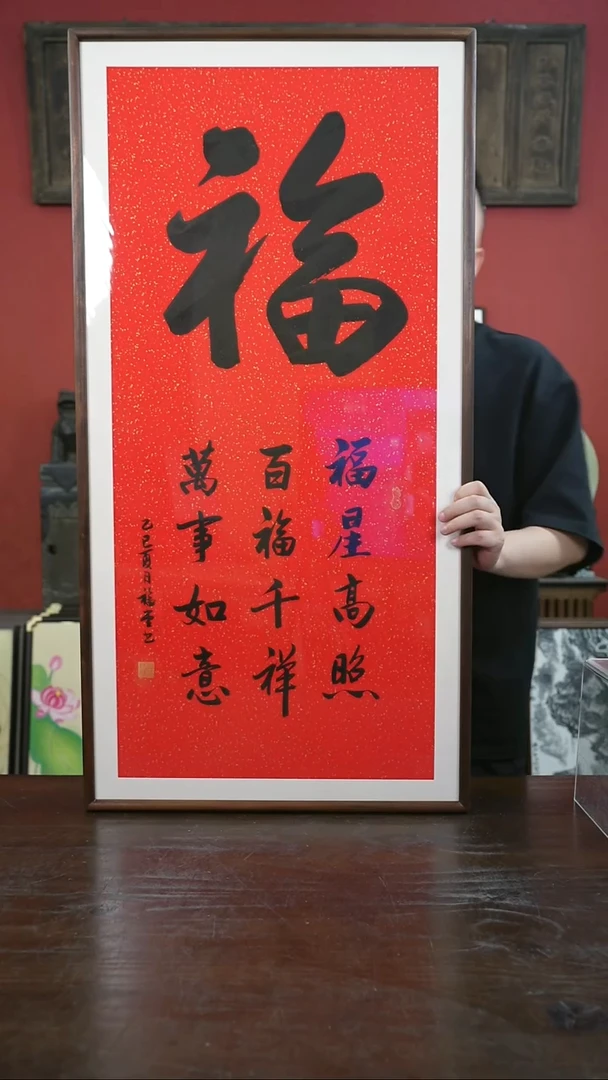 福
福星高照
百福千祥
萬事如意
乙巳夏月